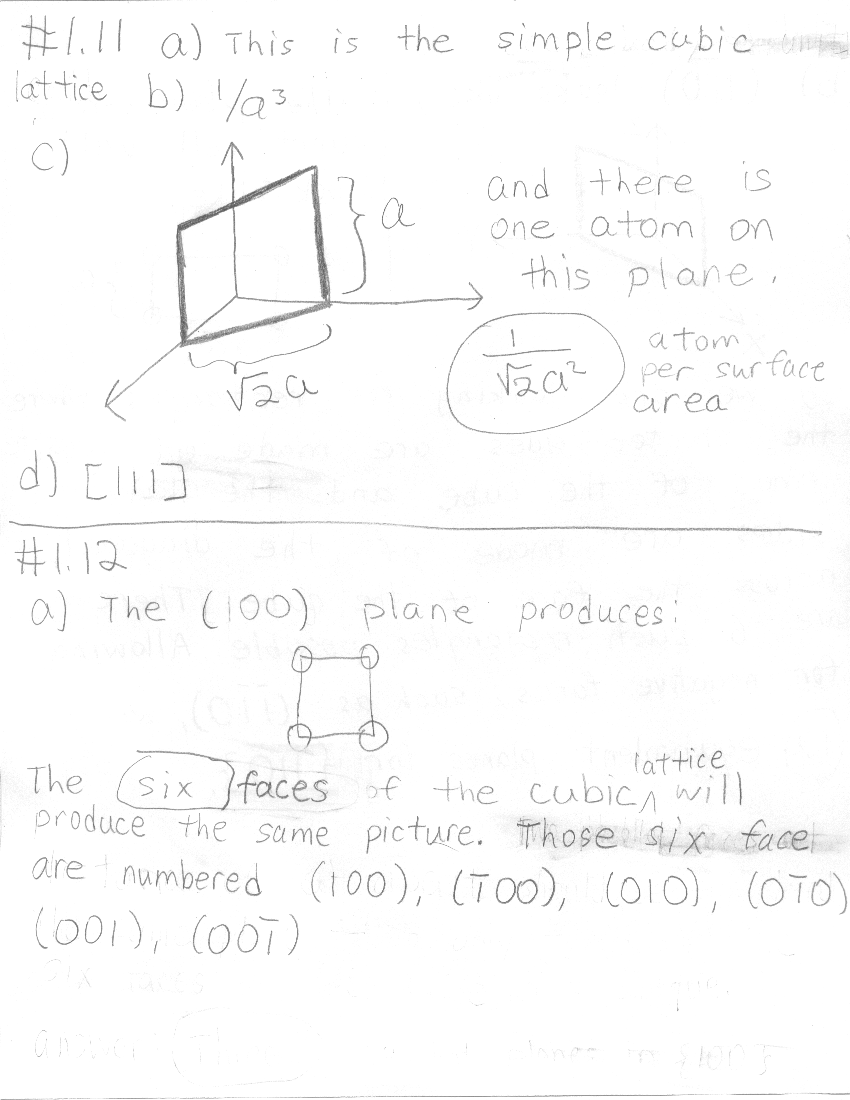 #1.11 a) This is the simple cubic
lattice b) 1/a³
c)
a
and there is
one atom on
this plane.
√2a
1/√2a²
atom
per surface
area
d) [111]
#1.12
a) The (100) plane produces:
The six faces of the cubic lattice will
produce the same picture. Those six face
are numbered (100), (1̅00), (010), (01̅0)
(001), (001̅)